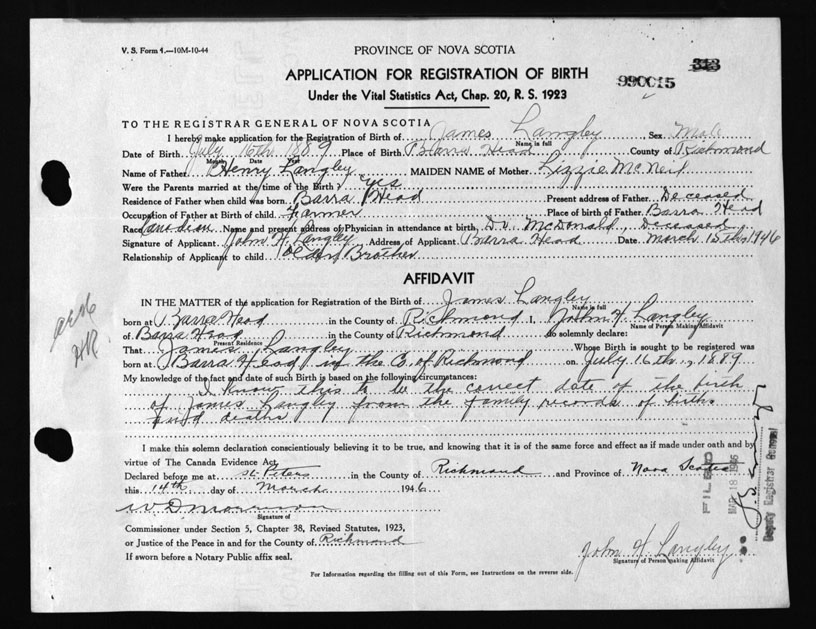 V. S. Form 4.—10M-10-44
PROVINCE OF NOVA SCOTIA
313
APPLICATION FOR REGISTRATION OF BIRTH
990015
Under the Vital Statistics Act, Chap. 20, R. S. 1923
TO THE REGISTRAR GENERAL OF NOVA SCOTIA
I hereby make application for the Registration of Birth of James Langley Sex Male
Name in full
Date of Birth July 16th 1889 Place of Birth Barra Head County of Richmond
Month Date Year
Name of Father Henry Langley MAIDEN NAME of Mother Lizzie McNeil
Were the Parents married at the time of the Birth? yes
Residence of Father when child was born Barra Head Present address of Father Deceased
Occupation of Father at Birth of child Farmer Place of birth of Father Barra Head
Race Canadian Name and present address of Physician in attendance at birth Dr. McDonald, Deceased
Signature of Applicant John H Langley Address of Applicant Barra Head Date March 15th 1946
Relationship of Applicant to child older Brother
AFFIDAVIT
IN THE MATTER of the application for Registration of the Birth of James Langley
Name in full
born at Barra Head in the County of Richmond I, John H Langley
Name of Person Making Affidavit
of Barra Head in the County of Richmond do solemnly declare:
Present Residence
That James Langley Whose Birth is sought to be registered was
born at Barra Head in the Co. of Richmond on July 16th, 1889
My knowledge of the fact and date of such Birth is based on the following circumstances:
I know this to be the correct date of the birth
of James Langley from the family records of births
and deaths
I make this solemn declaration conscientiously believing it to be true, and knowing that it is of the same force and effect as if made under oath and by
virtue of The Canada Evidence Act.
Declared before me at St Peters in the County of Richmond and Province of Nova Scotia
this 14th day of March 1946
W D Morrison
Signature of
Commissioner under Section 5, Chapter 38, Revised Statutes, 1923,
or Justice of the Peace in and for the County of Richmond
If sworn before a Notary Public affix seal.
John H Langley
Signature of Person making Affidavit
For Information regarding the filling out of this Form, see Instructions on the reverse side.
FILED
MAR 18 1946
Deputy Registrar General